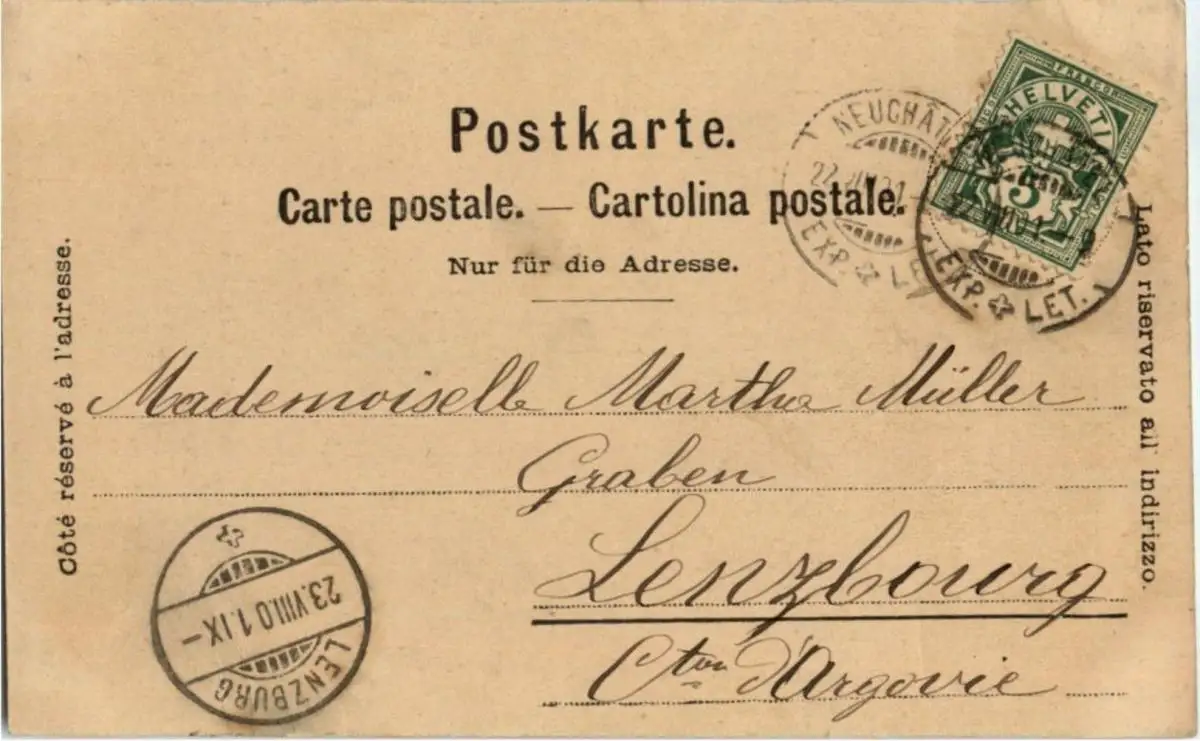 Postkarte.
Carte postale. — Cartolina postale.
Nur für die Adresse.
Côté réservé à l'adresse.
Lato riservato all' indirizzo.
FRANCO
HELVETI
5
NEUCHÂT
EXP. LET.
EXP. LET.
Mademoiselle Martha Müller
Graben
Lenzbourg
Cton d'Argovie
23.VIII.01.IX–
LENZBURG